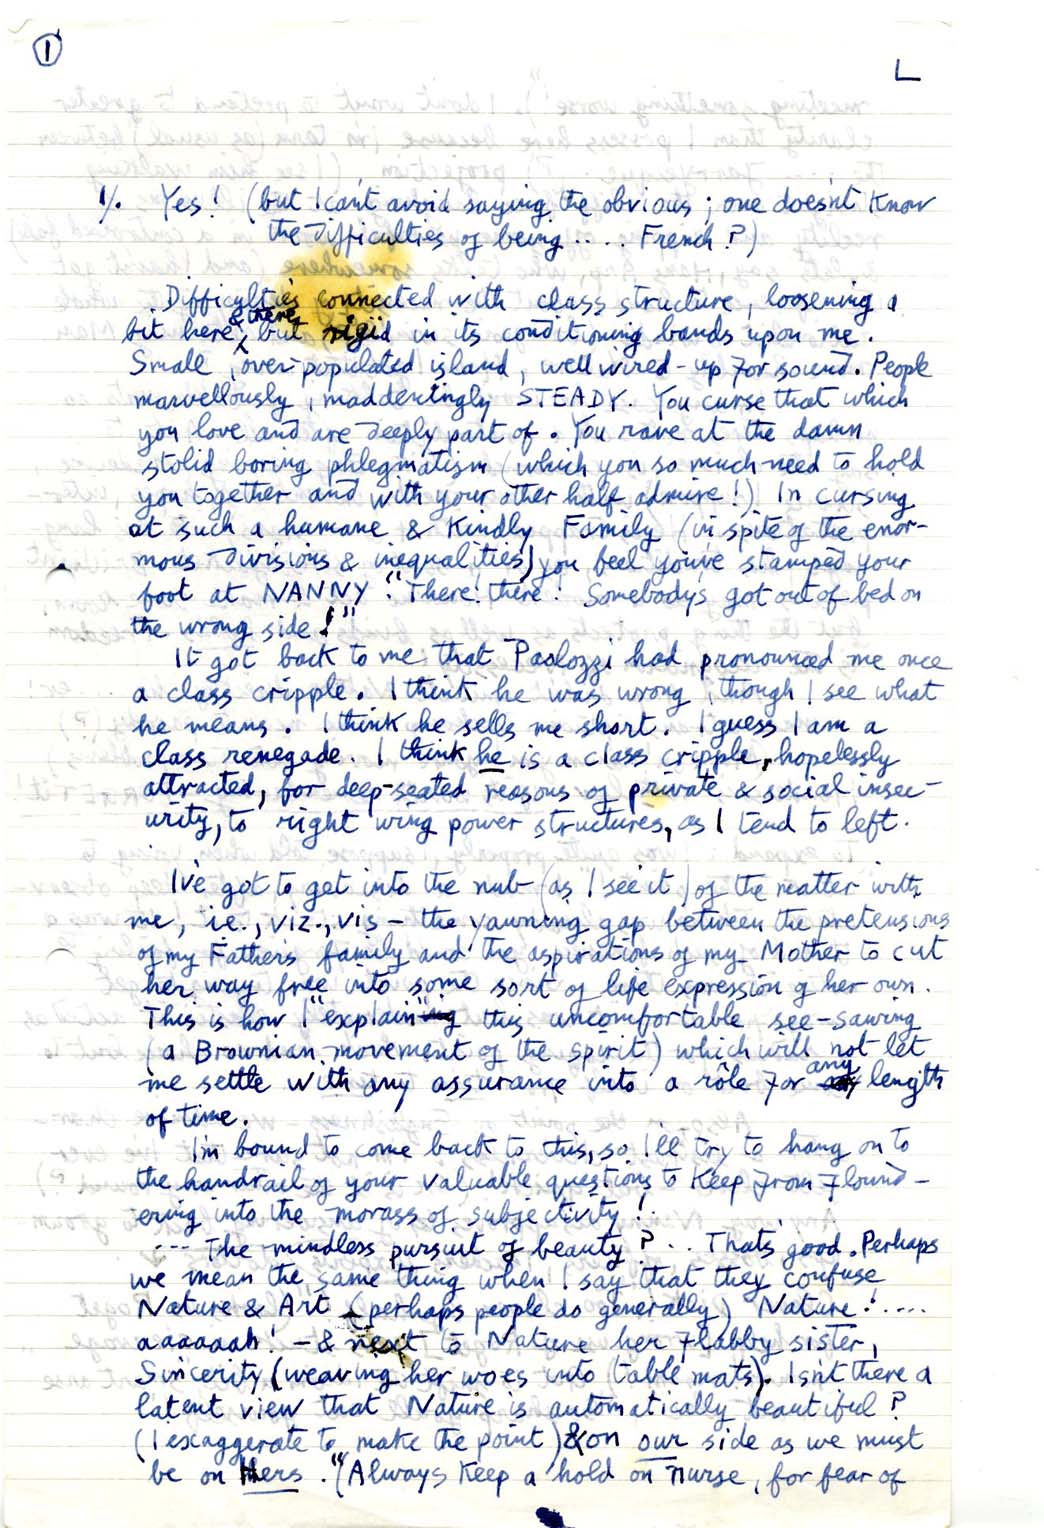 1
L
1/. Yes! (but I can't avoid saying the obvious; one doesn't know
the difficulties of being.... French?)
Difficulties connected with class structure, loosening a
bit here & there, but rigid in its conditioning bands upon me.
Small, over-populated island, well wired-up for sound. People
marvellously, maddeningly STEADY. You curse that which
you love and are deeply part of. You rave at the damn
stolid boring phlegmatism (which you so much need to hold
you together and with your other half admire!) In cursing
at such a humane & kindly Family (in spite of the enor-
mous divisions & inequalities) you feel you've stamped your
foot at NANNY "There! there! Somebody's got out of bed on
the wrong side!"
It got back to me that Paolozzi had pronounced me once
a class cripple. I think he was wrong, though I see what
he means. I think he sells me short. I guess I am a
class renegade. I think he is a class cripple, hopelessly
attracted, for deep-seated reasons of private & social insec-
urity, to right wing power structures, as I tend to left.
I've got to get into the nub (as I see it) of the matter with
me, i.e., viz., vis - the yawning gap between the pretensions
of my Father's family and the aspirations of my Mother to cut
her way free into some sort of life expression of her own.
This is how I "explain" this uncomfortable see-sawing
(a Brownian movement of the spirit) which will not let
me settle with any assurance into a rôle for any length
of time.
I'm bound to come back to this, so I'll try to hang on to
the handrail of your valuable questions to keep from flound-
ering into the morass of subjectivity!
--- The mindless pursuit of beauty?.. That's good. Perhaps
we mean the same thing when I say that they confuse
Nature & Art (perhaps people do generally) Nature!....
aaaaaah! - & next to Nature her flabby sister,
Sincerity (weaving her woes into table mats). Isn't there a
latent view that Nature is automatically beautiful?
(I exaggerate to make the point) & on our side as we must
be on Hers. "(Always keep a hold on nurse, for fear of